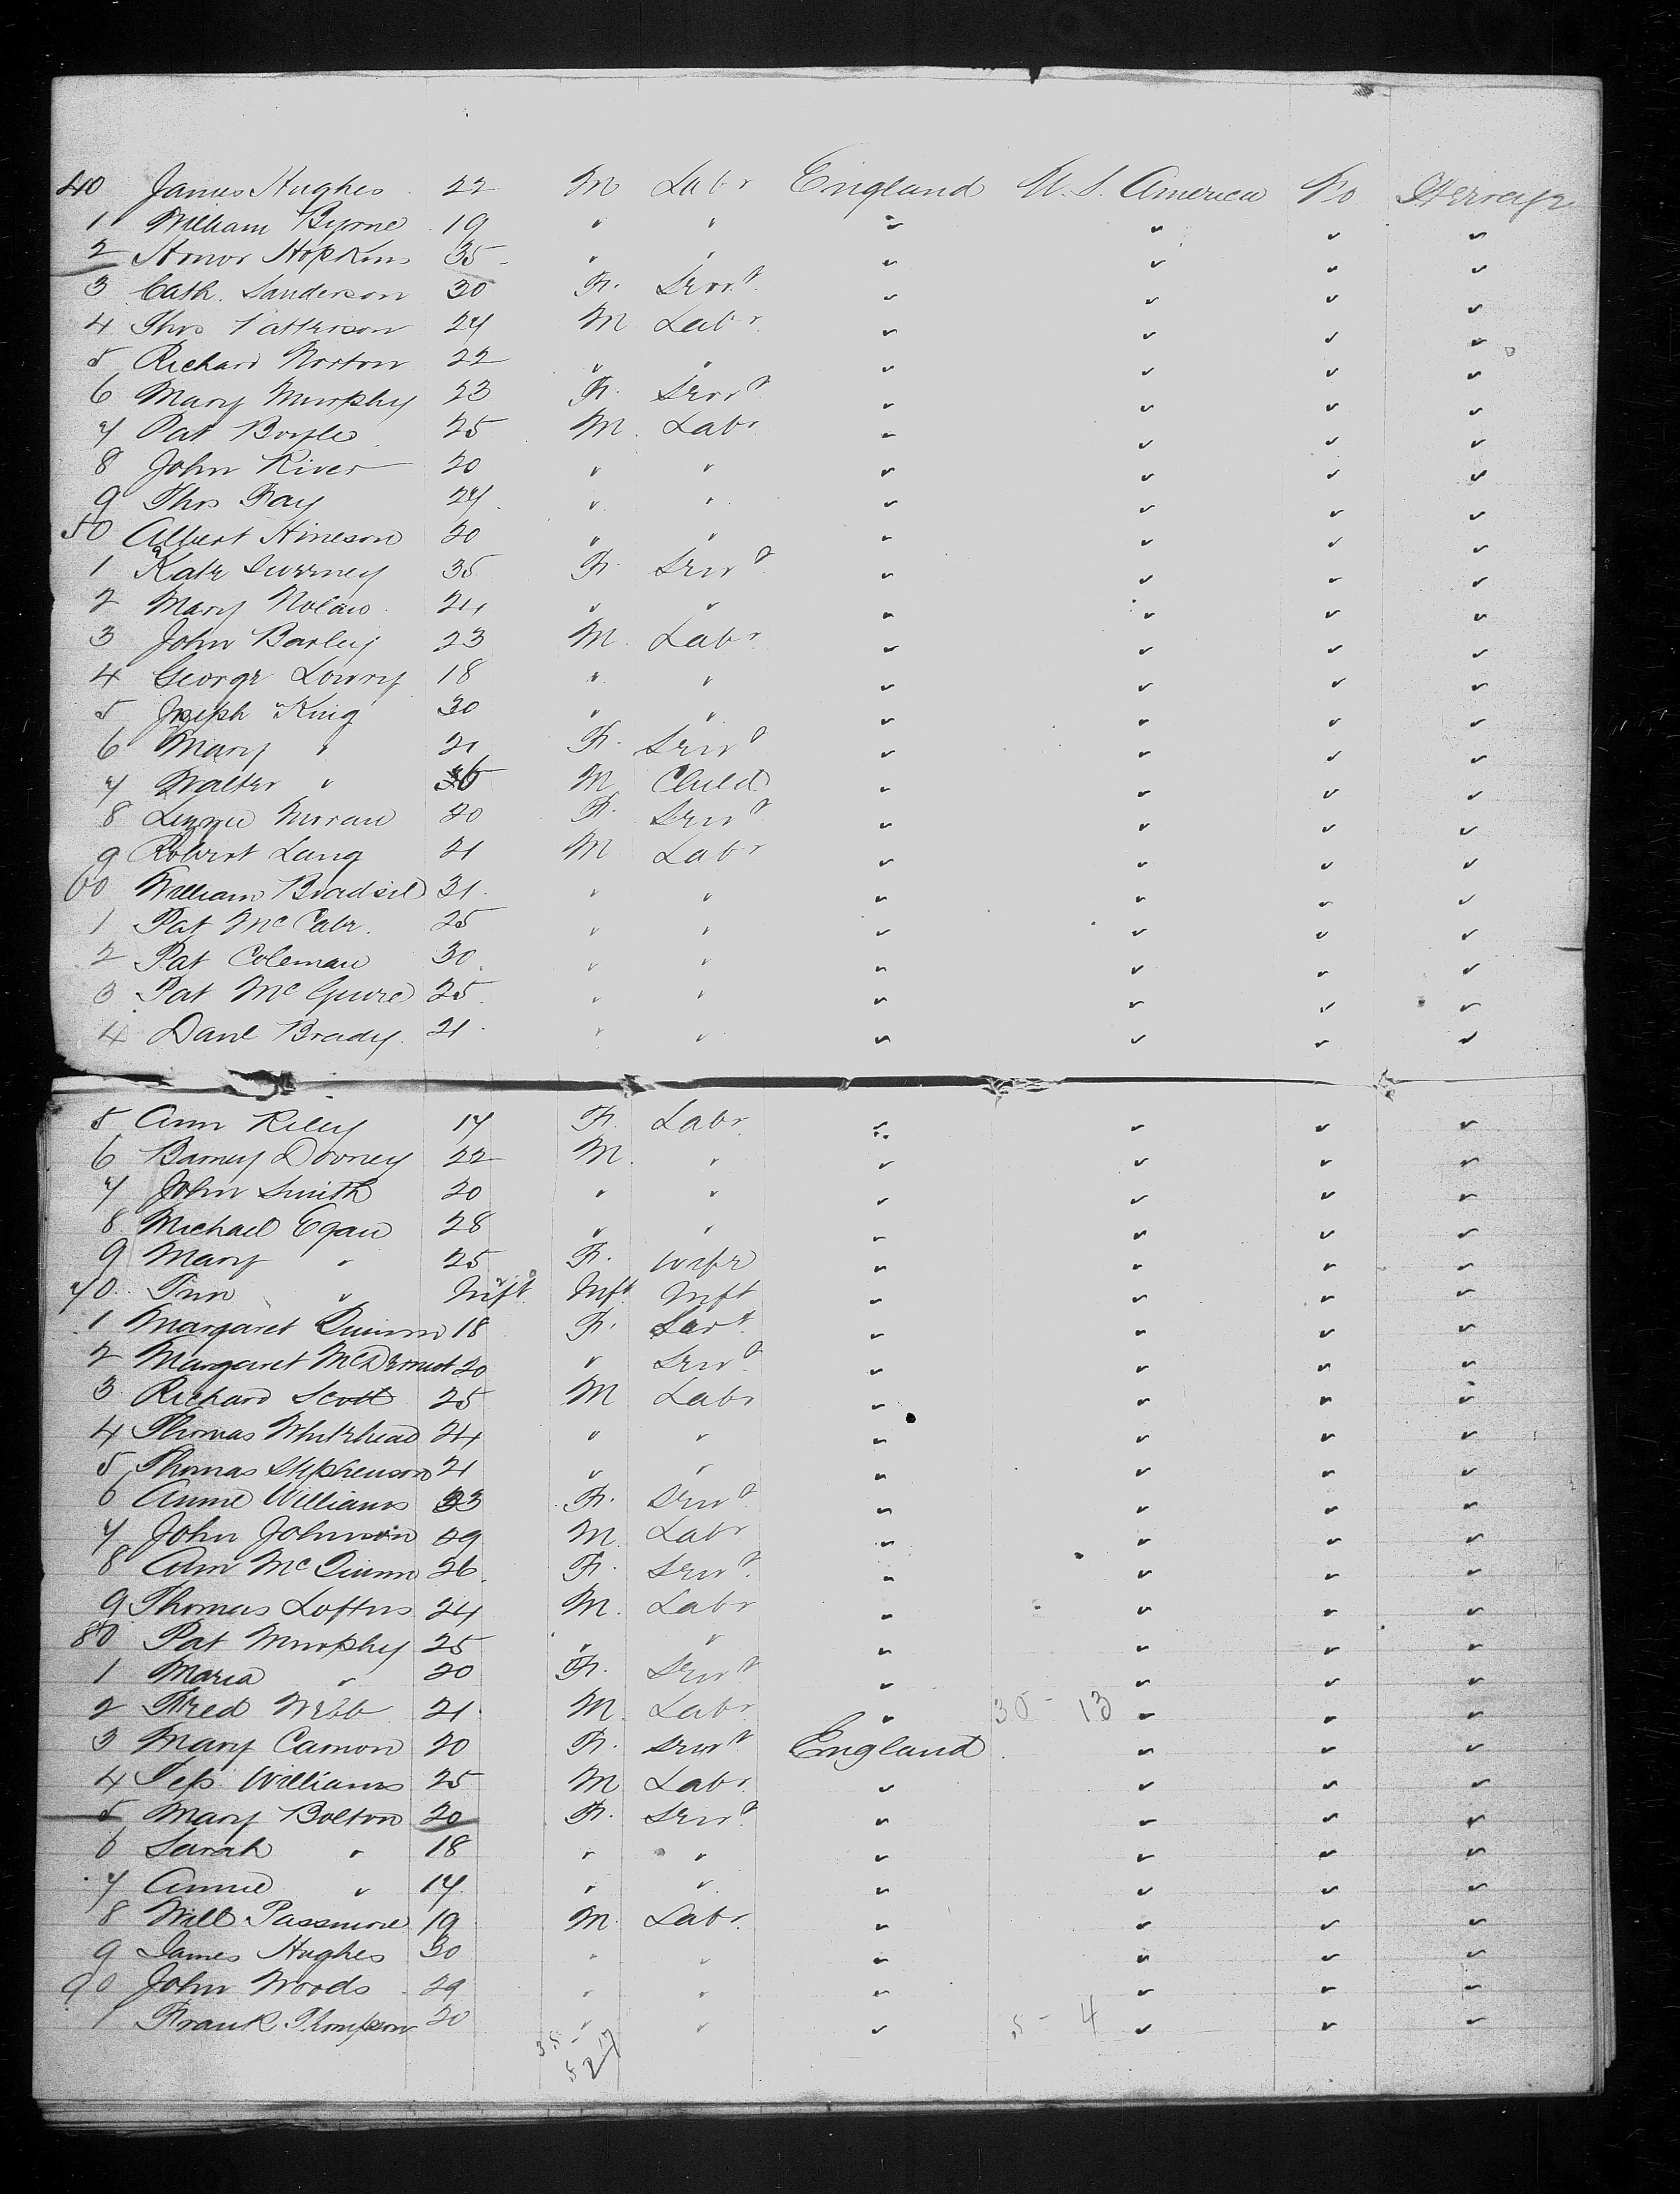 40 James Hughes 22 M Labr England U.S. America No Steerage
1 William Byrne 19 " " " " " "
2 Honor Hopkins 35 " " " " " "
3 Cath. Sanderson 30 F. Servt. " " " "
4 Thos Patterson 24 M Labr " " " "
5 Richard Norton 22 " " " " " "
6 Mary Murphy 23 F. Servt " " " "
7 Pat Boyle 25 M. Labr " " " "
8 John River 20 " " " " " "
9 Thos Fay 24 " " " " " "
50 Albert Hineson 20 " " " " " "
1 Kate Sweeney 35 F. Servt " " " "
2 Mary Nolan 24 " " " " " "
3 John Barley 23 M. Labr " " " "
4 George Lowry 18 " " " " " "
5 Joseph King 30 " " " " " "
6 Mary " 21 F. Servt " " " "
7 Walter " M Child " " " "
8 Lizzie Moran 20 F. Servt " " " "
9 Robert Lang 21 M Labr " " " "
60 William 31 " " " " " "
1 Pat McCabe 25 " " " " " "
2 Pat Coleman 30 " " " " " "
3 Pat McGuire 25 " " " " " "
4 Danl Brady 21 " " " " " "
5 Ann Riley 17 F. Labr " " " "
6 Barney Downey 22 M. " " " " "
7 John Smith 20 " " " " " "
8 Michael Egan 28 " " " " " "
9 Mary " 25 F. Wife " " " "
70 " Inft. Inft Inft " " " "
1 Margaret Quinn 18 F. Servt. " " " "
2 Margaret McDermot 20 " Servt " " " "
3 Richard Scott 25 M Labr " " " "
4 Thomas Whitehead 24 " " " " " "
5 Thomas Stephenson 21 " " " " " "
6 Annie Williams 33 F. Servt " " " "
7 John Johnson 29 M. Labr " " " "
8 Ann McQuinn 26 F. Servt. " " " "
9 Thomas Loftus 24 M. Labr " " " "
80 Pat Murphy 25 " " " " " "
1 Maria " 20 F. Servt " " " "
2 Fred Webb 21 M. Labr " 30 - 13 " " "
3 Mary Camon 20 F. Servt England " " "
4 Williams 25 M Labr " " " "
5 Mary Bolton 20 F. Servt " " " "
6 Sarah " 18 " " " " " "
7 Annie " 17 " " " " " "
8 Will Passmore 19 M. Labr " " " "
9 James Hughes 30 " " " " " "
90 John Woods 29 " " " " " "
1 Frank Thompson 20 " " " 5 - 4 " " "
35 - 17